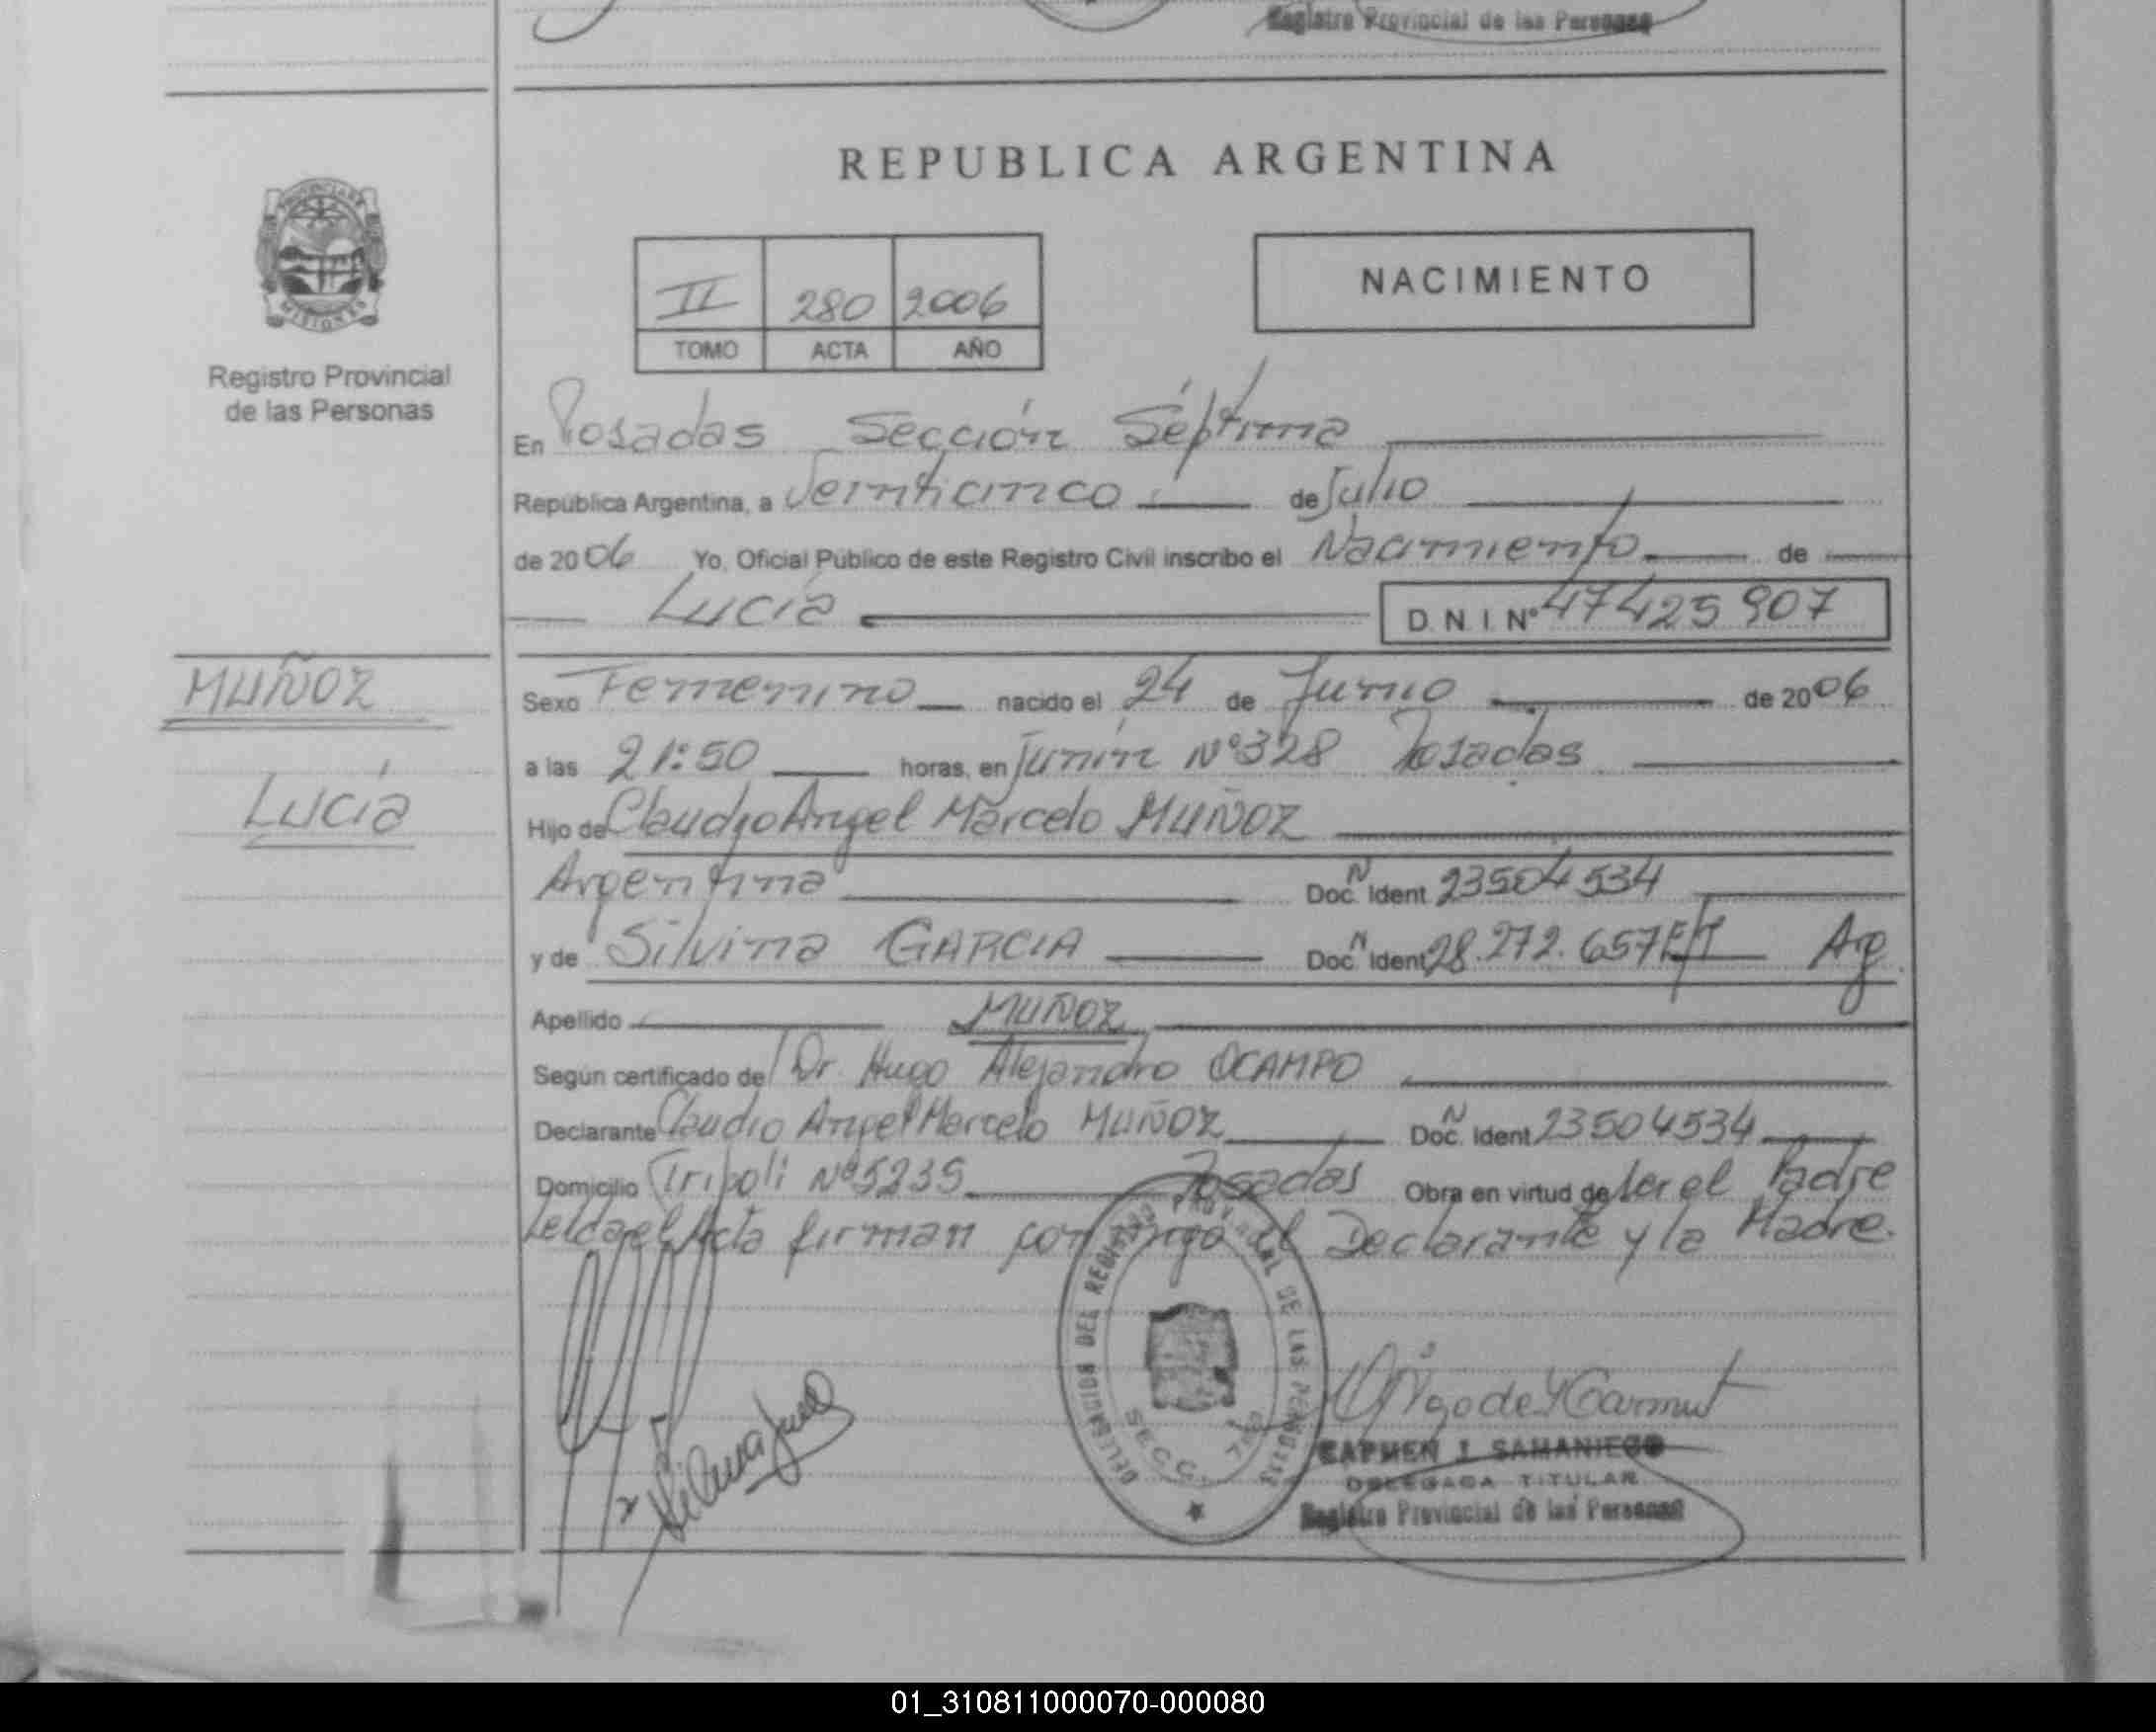 Registro Provincial de las Personas
REPUBLICA ARGENTINA
PROVINCIA DE
MISIONES
Registro Provincial
de las Personas
II 280 2006
TOMO ACTA AÑO
NACIMIENTO
En Posadas Sección Séptima
República Argentina, a Veinticinco de Julio
de 2006 Yo, Oficial Público de este Registro Civil inscribo el Nacimiento de
Lucía D.N.I. Nº 47425907
MUÑOZ
Lucía
Sexo Femenino nacido el 24 de Junio de 2006
a las 21:50 horas, en Junín Nº 328 Posadas
Hijo de Claudio Angel Marcelo MUÑOZ
Argentina Doc. N Ident. 23504534
y de Silvina GARCIA Doc. N Ident. 28.272.657 E/T Arg
Apellido MUÑOZ
Según certificado de Dr. Hugo Alejandro OCAMPO
Declarante Claudio Angel Marcelo MUÑOZ Doc. N Ident. 23504534
Domicilio Tripoli Nº 5235 Posadas Obra en virtud de ser el Padre
Leída el Acta firman conmigo el Declarante y la Madre.
DELEGACION DEL REGISTRO PROVINCIAL DE LAS PERSONAS
SECC. 7
CARMEN I. SAMANIEGO
DELEGADA TITULAR
Registro Provincial de las Personas
01_310811000070-000080